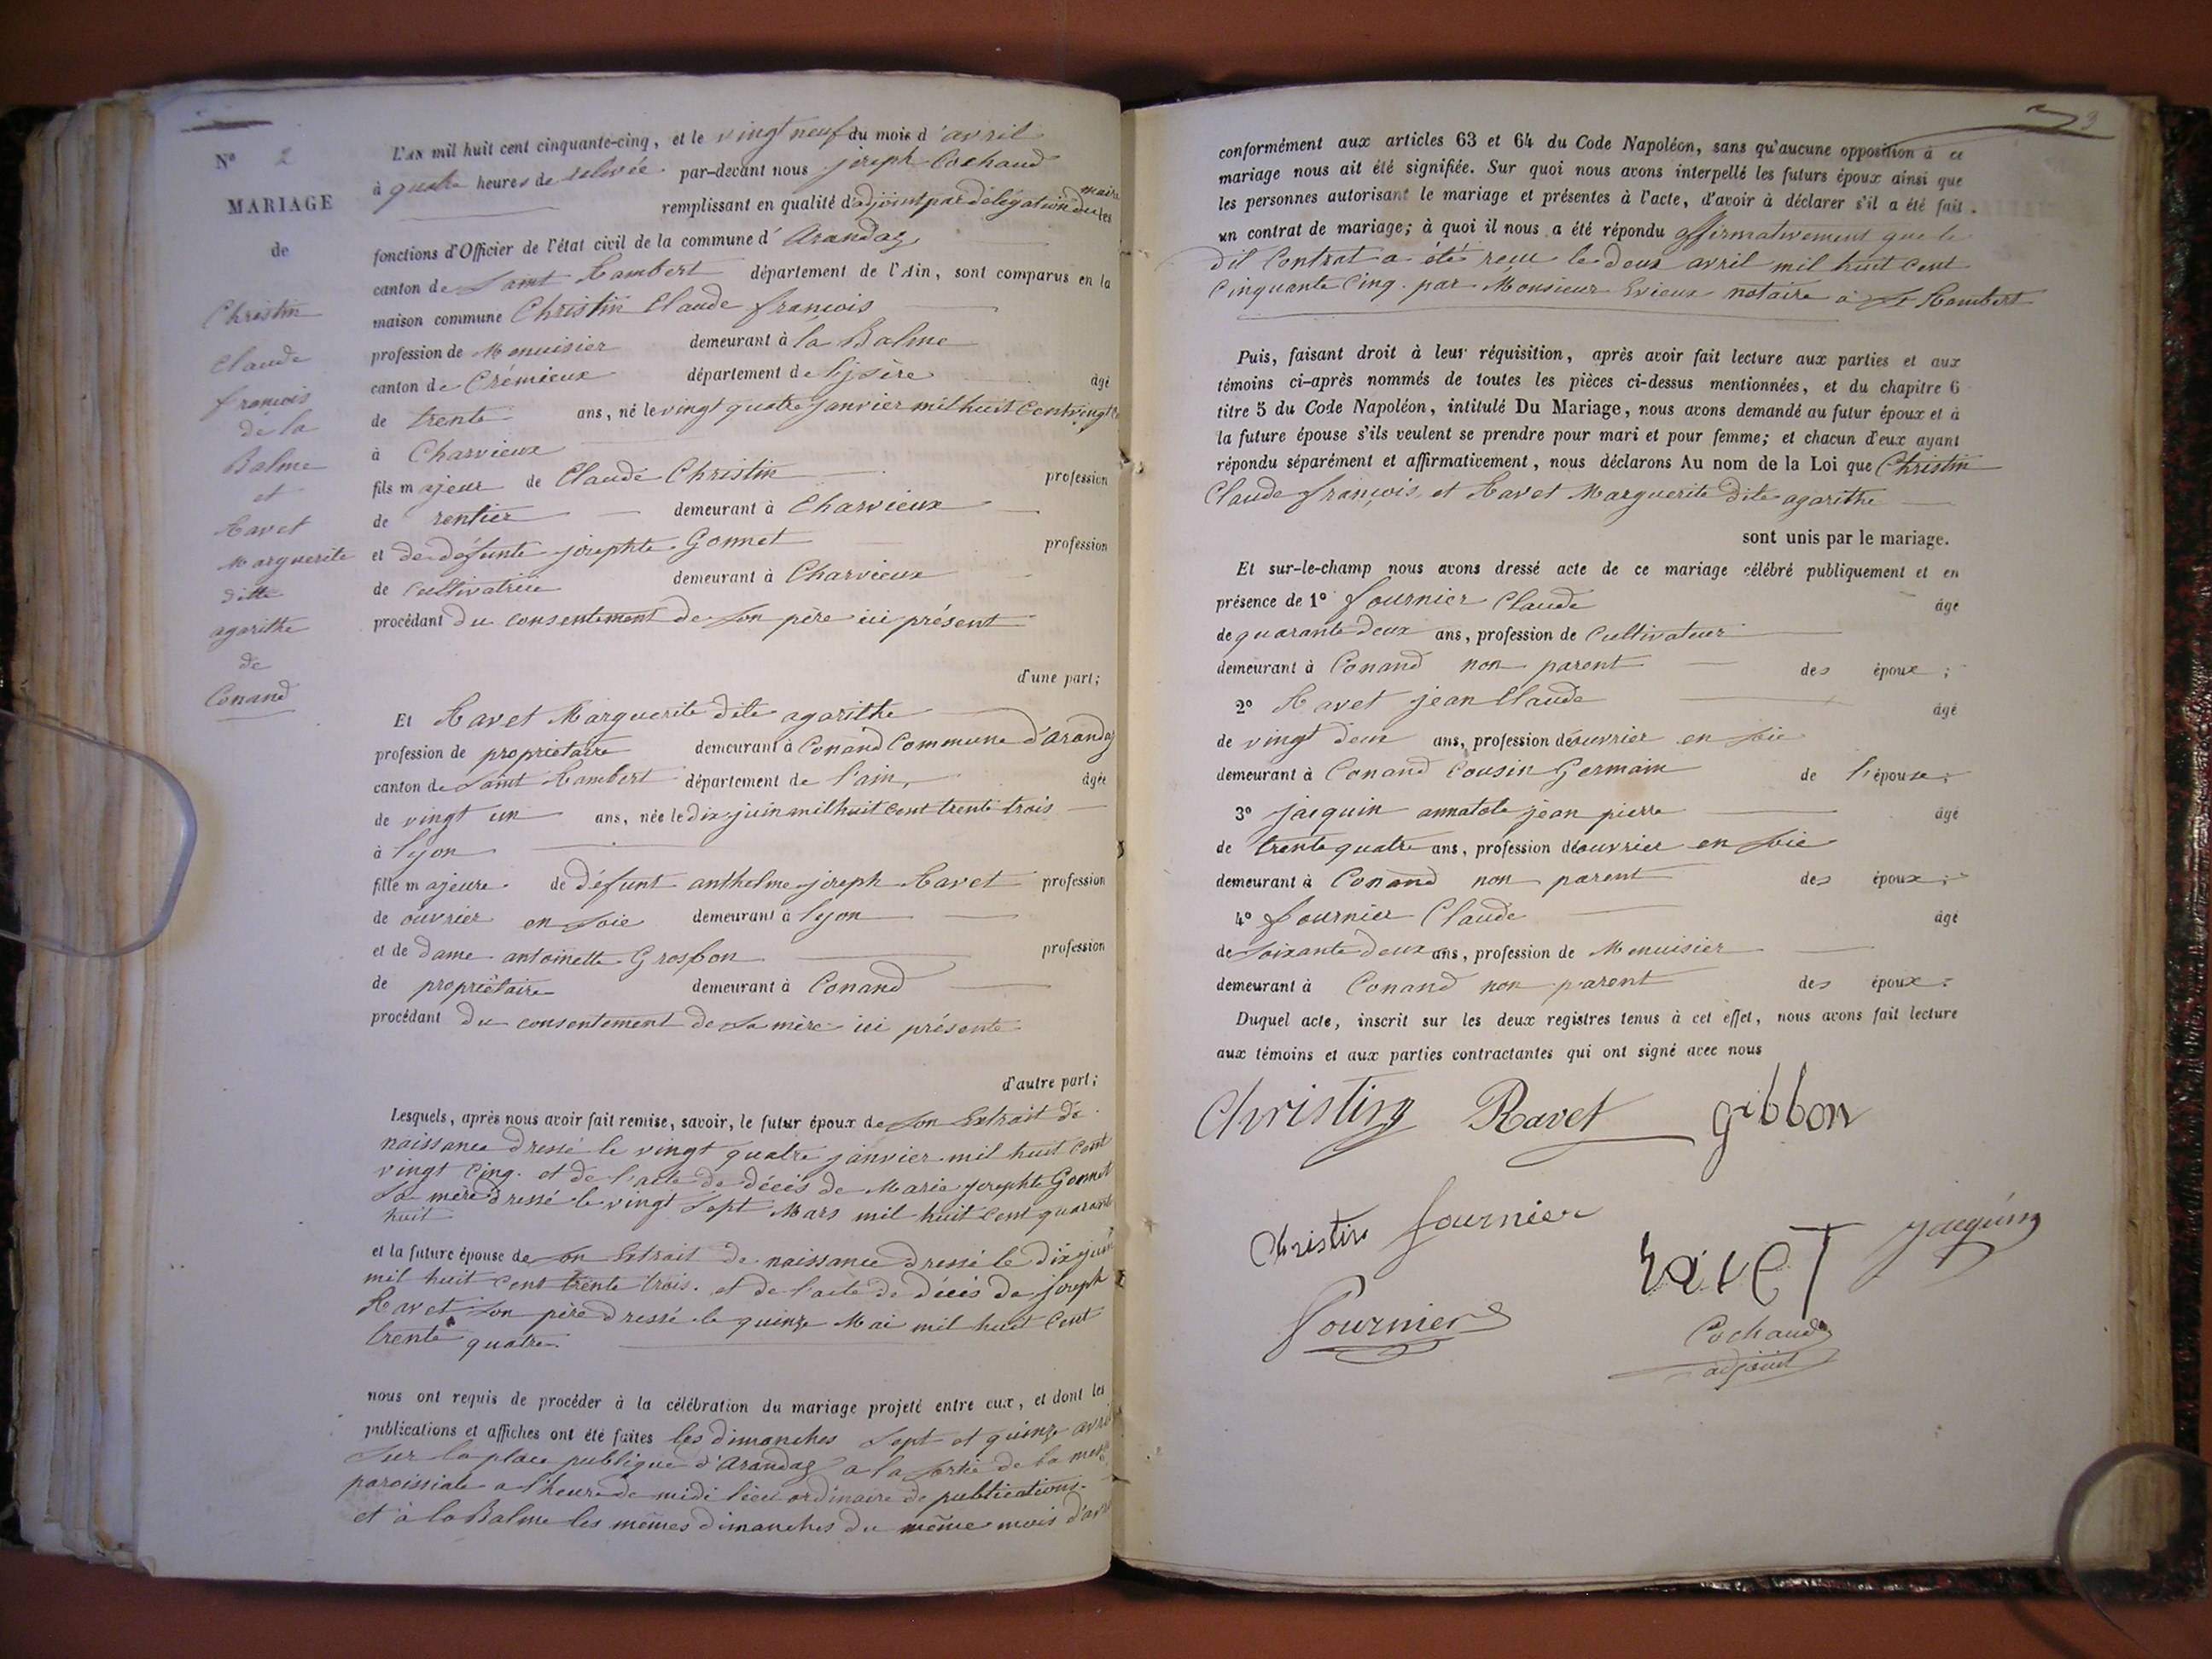 N° 2
MARIAGE
de
Christin
Claude
francois
de la
Balme
et
Ravet
Marguerite
ditte
agarithe
de
Conand
L'AN mil huit cent cinquante-cinq, et le vingt neuf du mois d'avril
à quatre heures de relevée par-devant nous joseph Cochaud
remplissant en qualité d'adjoint par délégation du maire les
fonctions d'Officier de l'état civil de la commune d'Arandas
canton de Saint Rambert département de l'Ain, sont comparus en la
maison commune Christin Claude francois
profession de Menuisier demeurant à la Balme
canton de Crémieux département de l'jsère âgé
de trente ans, né le vingt quatre janvier mil huit cent vingt
à Charvieux
fils majeur de Claude Christin profession
de rentier demeurant à Charvieux
et de défunte josephte Gonnet profession
de Cultivatrice demeurant à Charvieux
procédant du consentement de son père ici présent
d'une part;
Et Ravet Marguerite dite agarithe
profession de propriétaire demeurant à Conand Commune d'Arandas
canton de Saint Rambert département de l'ain, âgée
de vingt un ans, née le dix juin mil huit cent trente trois
à lyon
fille majeure de défunt anthelme joseph Ravet profession
de ouvrier en soie demeurant à lyon
et de Dame antoinette Grosfon profession
de propriétaire demeurant à Conand
procédant du consentement de sa mère ici présente
d'autre part;
Lesquels, après nous avoir fait remise, savoir, le futur époux de son Extrait de
naissance dressé le vingt quatre janvier mil huit cent
vingt cinq. et de l'acte de décès de Marie josephte Gonnet
Sa mère dressé le vingt Sept Mars mil huit cent quarante
huit
et la future épouse de son Extrait de naissance dressé le dix juin
mil huit cent trente trois. et de l'acte de décès de joseph
Ravet son père dressé le quinze Mai mil huit Cent
trente quatre
nous ont requis de procéder à la célébration du mariage projeté entre eux, et dont les
publications et affiches ont été faites les dimanches Sept et quinze avril
sur la place publique d'Arandas a la sortie de la messe
paroissiale a l'heure de midi lieu ordinaire de publications.
et à la Balme les mêmes dimanches du même mois d'avril
3
conformément aux articles 63 et 64 du Code Napoléon, sans qu'aucune opposition à ce
mariage nous ait été signifiée. Sur quoi nous avons interpellé les futurs époux ainsi que
les personnes autorisant le mariage et présentes à l'acte, d'avoir à déclarer s'il a été fait
un contrat de mariage; à quoi il nous a été répondu affirmativement que le
dit Contrat a été recu le deux avril mil huit cent
Cinquante Cinq. par Monsieur Evieux notaire à St Rambert
Puis, faisant droit à leur réquisition, après avoir fait lecture aux parties et aux
témoins ci-après nommés de toutes les pièces ci-dessus mentionnées, et du chapitre 6
titre 5 du Code Napoléon, intitulé Du Mariage, nous avons demandé au futur époux et à
la future épouse s'ils veulent se prendre pour mari et pour femme; et chacun d'eux ayant
répondu séparément et affirmativement, nous déclarons Au nom de la Loi que Christin
Claude françois, et Ravet Marguerite dite agarithe
sont unis par le mariage.
Et sur-le-champ nous avons dressé acte de ce mariage célébré publiquement et en
présence de 1° fournier Claude âgé
de quarante deux ans, profession de Cultivateur
demeurant à Conand non parent des époux;
2° Ravet jean Claude âgé
de vingt deux ans, profession de ouvrier en soie
demeurant à Conand Cousin Germain de l'épouse;
3° jacquin annatole jean pierre âgé
de trente quatre ans, profession de ouvrier en soie
demeurant à Conand non parent des époux;
4° fournier Claude âgé
de soixante deux ans, profession de Menuisier
demeurant à Conand non parent des époux.
Duquel acte, inscrit sur les deux registres tenus à cet effet, nous avons fait lecture
aux témoins et aux parties contractantes qui ont signé avec nous
Christin Ravet gribbon
Christin fournier ravet jacquin
fournier Cochaud
adjoint